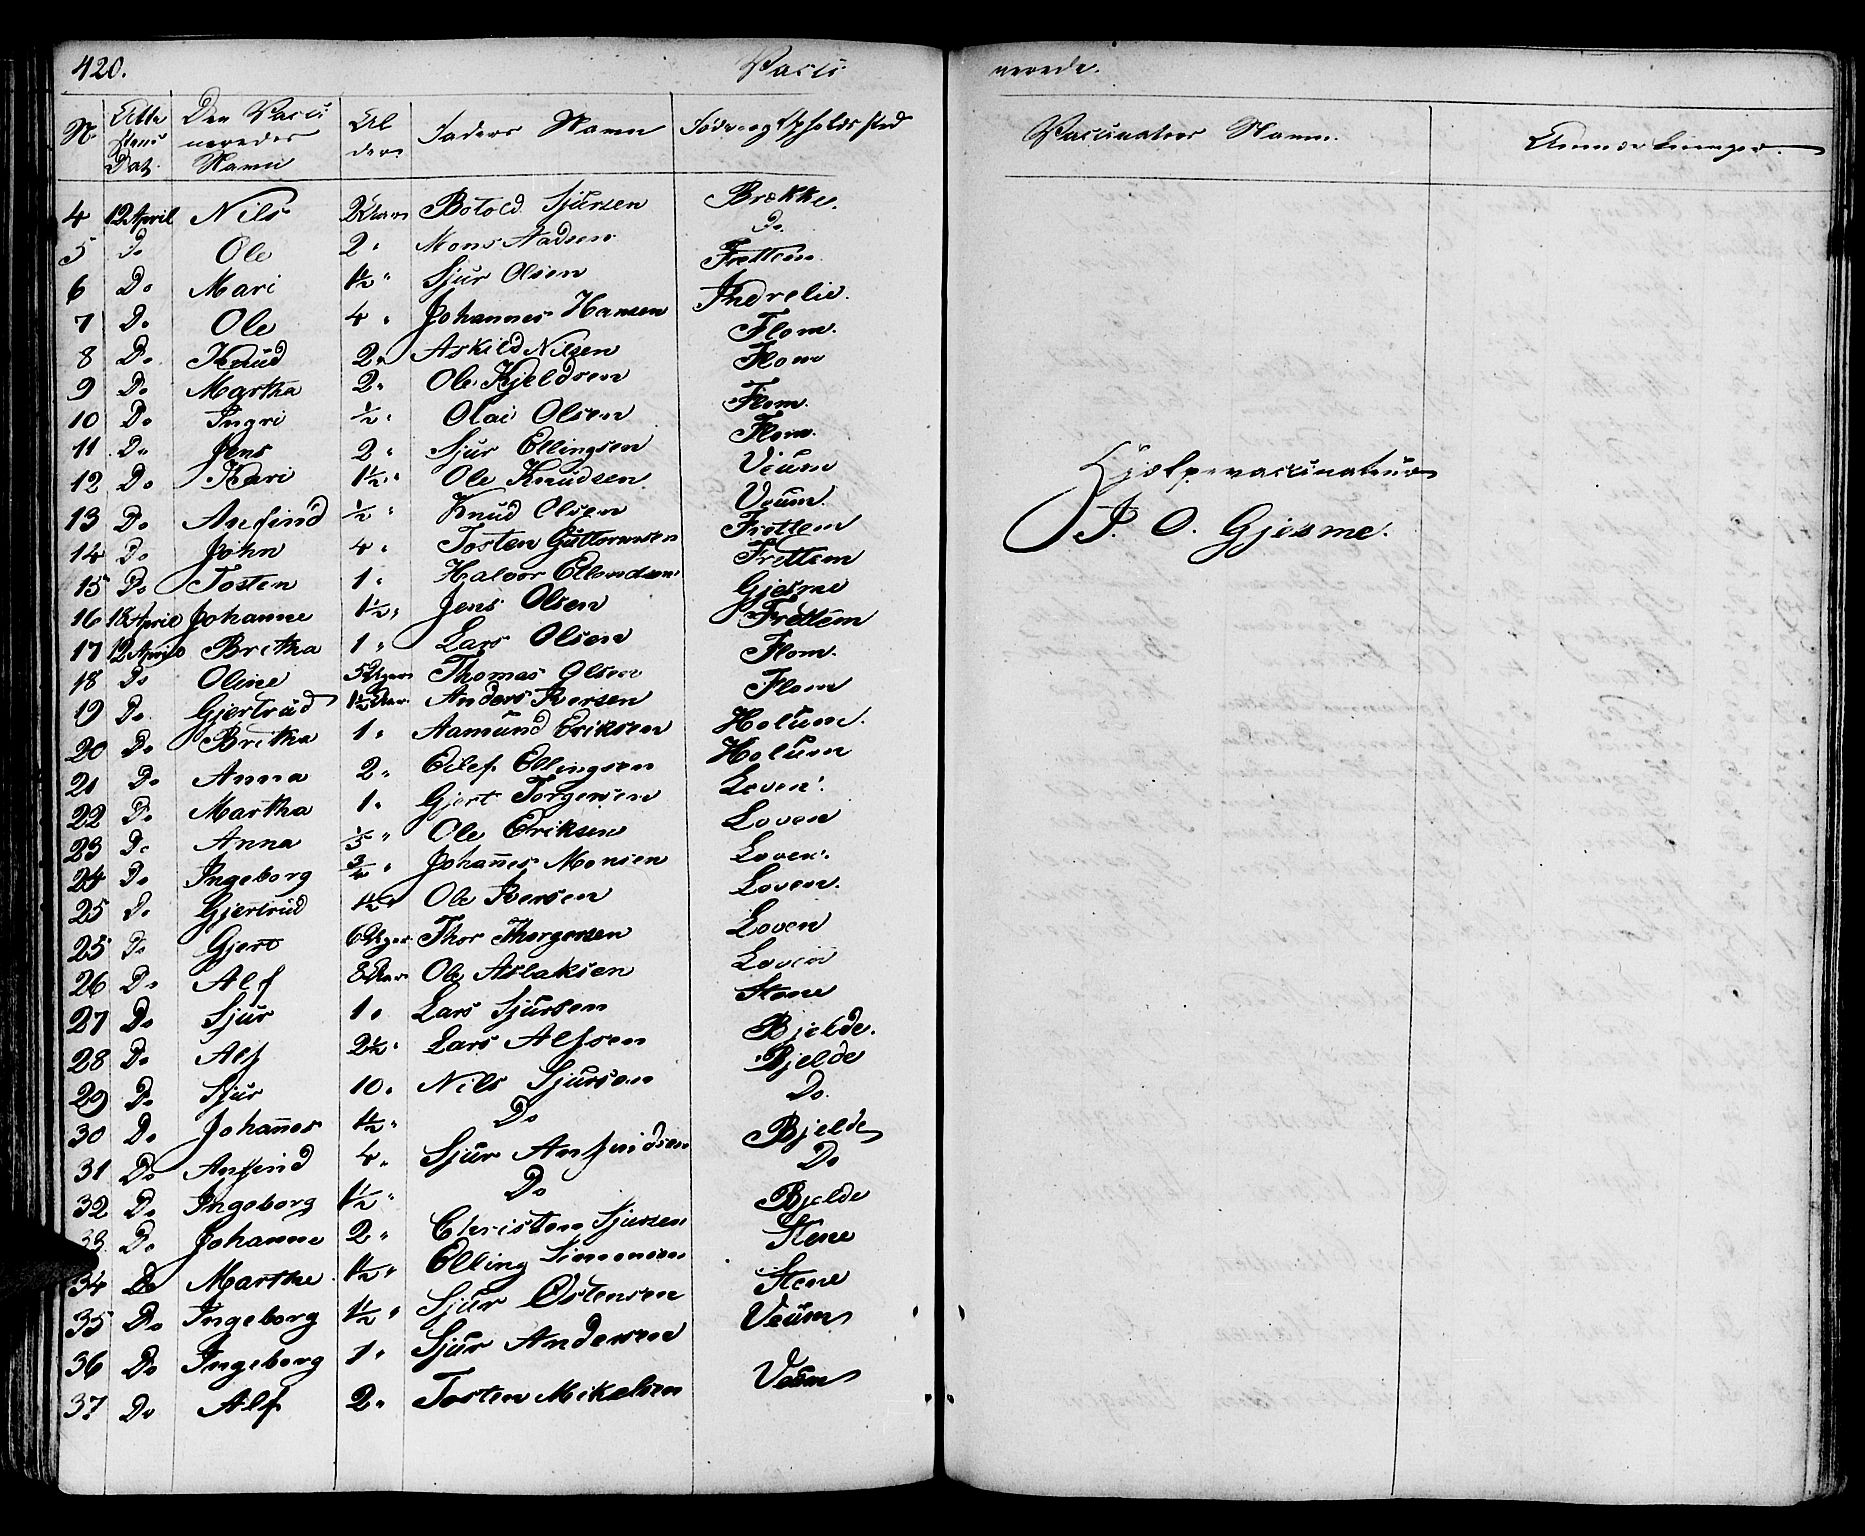 420. Vacci nerede.
No Atte stens Dat. Den Vacci neredes Navn Al der. Faders Navn Føde og Opholdssted Vaccinateur Navn. Anmærkninger.
4 12 April Nils 2 Aar Botold Sjursen Brække.
5 Do Ole 2 " Mons Aadsen Do.
6 Do Mari 1½ " Sjur Olsen Frettem.
7 Do Ole 4 " Johannes Hansen Indrelie.
8 Do Knud 2 " Askild Nilsen Flom.
9 Do Martha 2 " Ole Kjeldsen Flom
10 Do Ingri ½ " Olai Olsen Flom.
11 Do Jens 2 " Sjur Ellingsen Flom.
12 Do Kari 1½ " Ole Knudsen Vium
13 Do Anfind ½ " Knud Olsen Veum.
14 Do John 4 " Tosten Guttormsen Frettem
15 Do Tosten 1 " Halvor Ellendsen Frettem
16 18 April Johanne 1½ " Jens Olsen Gjesme
17 12 April Britha 1 " Lars Olsen Frettem
18 Do Oline 5 Uger Thomas Olsen Flom.
19 Do Gjertrud 1½ Aar Anders Iversen Flom
20 Do Britha 1 " Aamund Eriksen Holum.
21 Do Anna 2 " Eilef Ellingsen Holum
22 Do Martha 1 " Gjert Torgersen Loven.
23 Do Anna ⅕ " Ole Eriksen Loven
24 Do Ingeborg ¾ " Johanes Monsen Loven.
25 Do Gjertrud 1½ " Ole Iversen Loven.
25 Do Gjert 6 Uger Thor Thorgersen Loven
26 Do Alf 8 Aar Ole Aslaksen Loven
27 Do Sjur 1 " Lars Sjursen Stene
28 Do Alf 2½ " Lars Alfsen Bjelde.
29 Do Sjur 10 " Nils Sjursen Bjelde
30 Do Johannes 1½ " Do Do.
31 Do Anfind 4 " Sjur Anfindsen Bjelde
32 Do Ingeborg 1½ " Do Do
33 Do Johanne 2 " Christen Sjursen Bjelde
34 Do Marthe 1½ " Elling Simonsen Stene
35 Do Ingeborg 1½ " Sjur Ostensen Stene
36 Do Ingeborg 1 " Sjur Andersen Veum
37 Do Alf 2 " Tosten Mikelsen Veum
Hjælpevaccinateur
J. O. Gjesme.